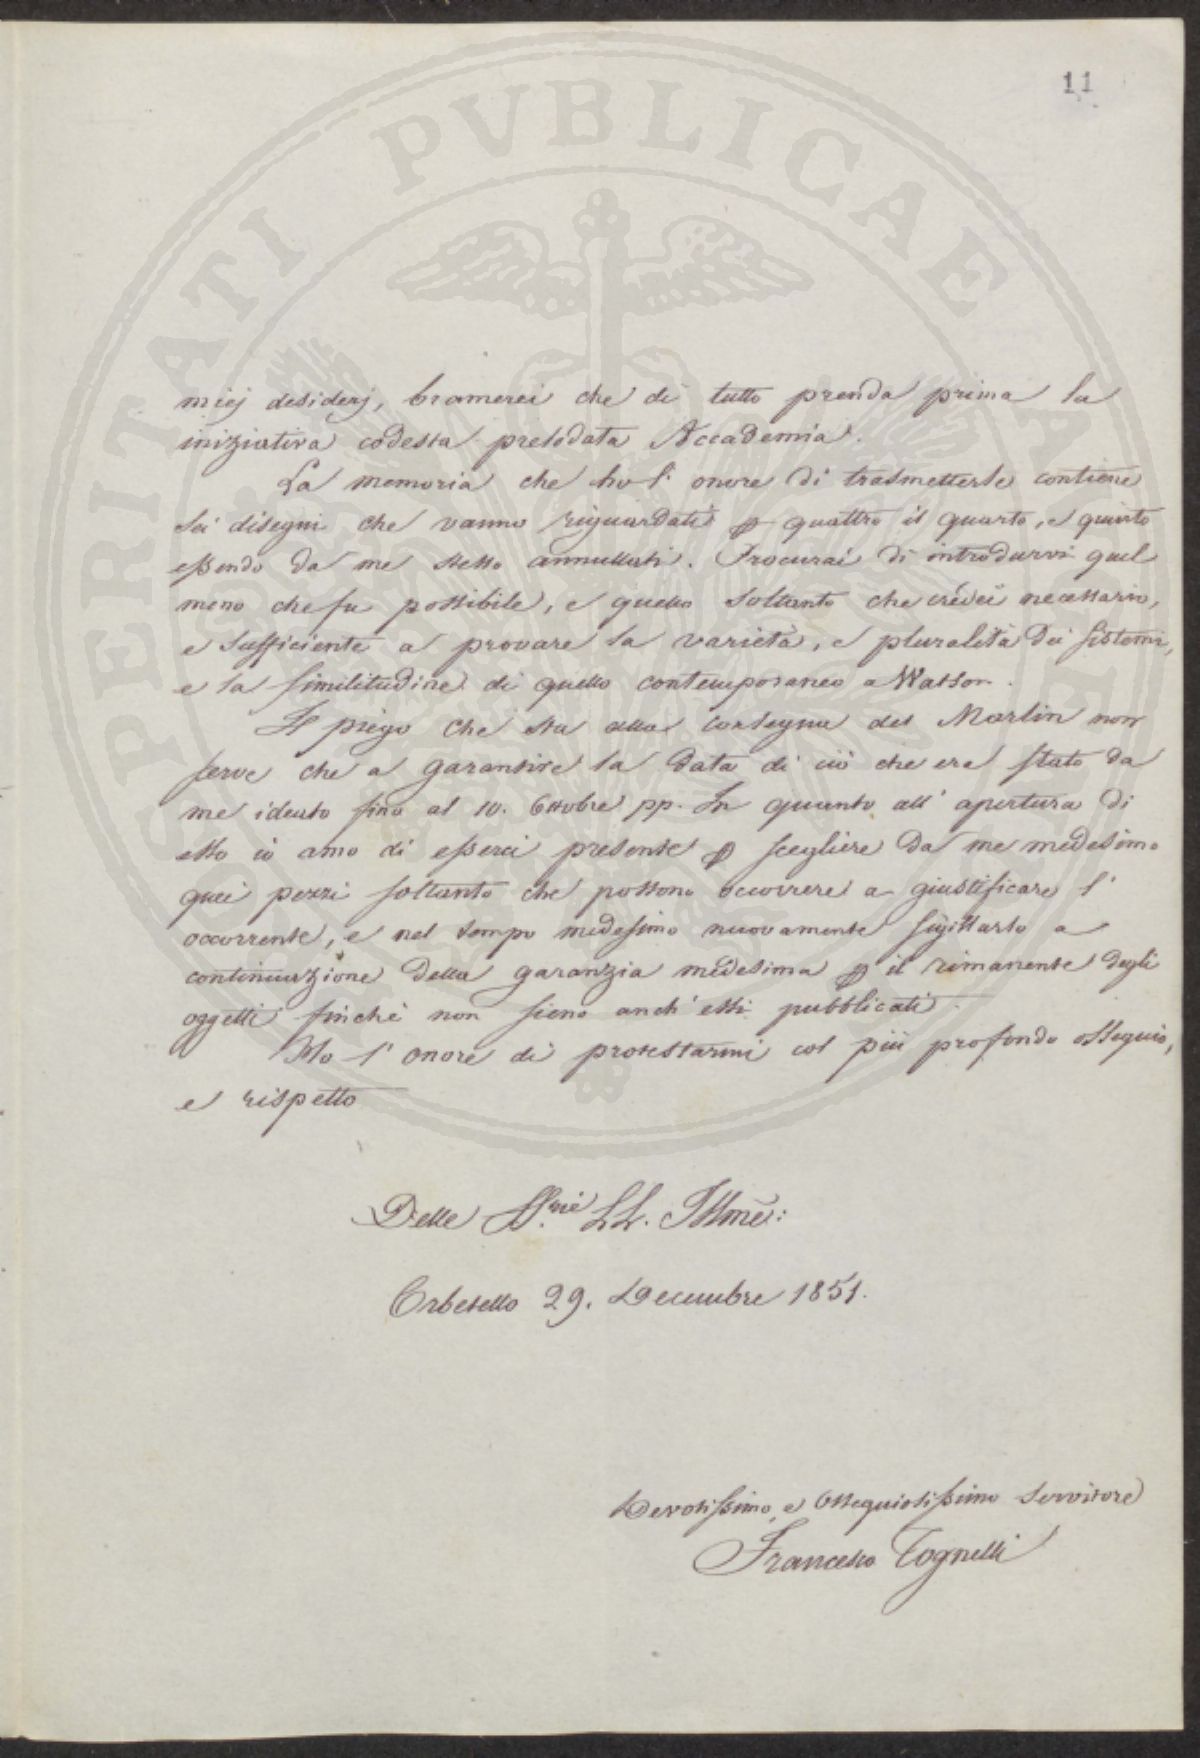 11
PROSPERITATI PVBLICAE
miej desiderj, bramerei che di tutto prenda prima la
iniziativa codesta prelodata Accademia.
La memoria che ho l' onore di trasmetterle contiene
sei disegni che vanno riguardati p quattro il quarto, e quinto
essendo da me stesso annullati. Procurai di introdurvi quel
meno che fu possibile, e quello soltanto che credei necessario,
e sufficiente a provare la varietà, e pluralità dei sistemi,
e la similitudine di quello contemporaneo a Watson.
Il piego che sta alla consegna del Martin non
serve che a garantire la data di ciò che era stato da
me ideato fino al 10. Ottobre pp. In quanto all' apertura di
esso io amo di esserci presente p scegliere da me medesimo
quei pezzi soltanto che possono occorrere a giustificare l'
occorrente, e nel tempo medesimo nuovamente sigillarlo a
continuazione della garanzia medesima p il rimanente degli
oggetti finchè non sieno anch' essi pubblicati.
Ho l' onore di protestarmi col più profondo ossequio,
e rispetto
Delle SSrie LL. Illme:
Orbetello 29. Decembre 1851.
Devotissimo, e Ossequiosissimo Servitore
Francesco Tognelli